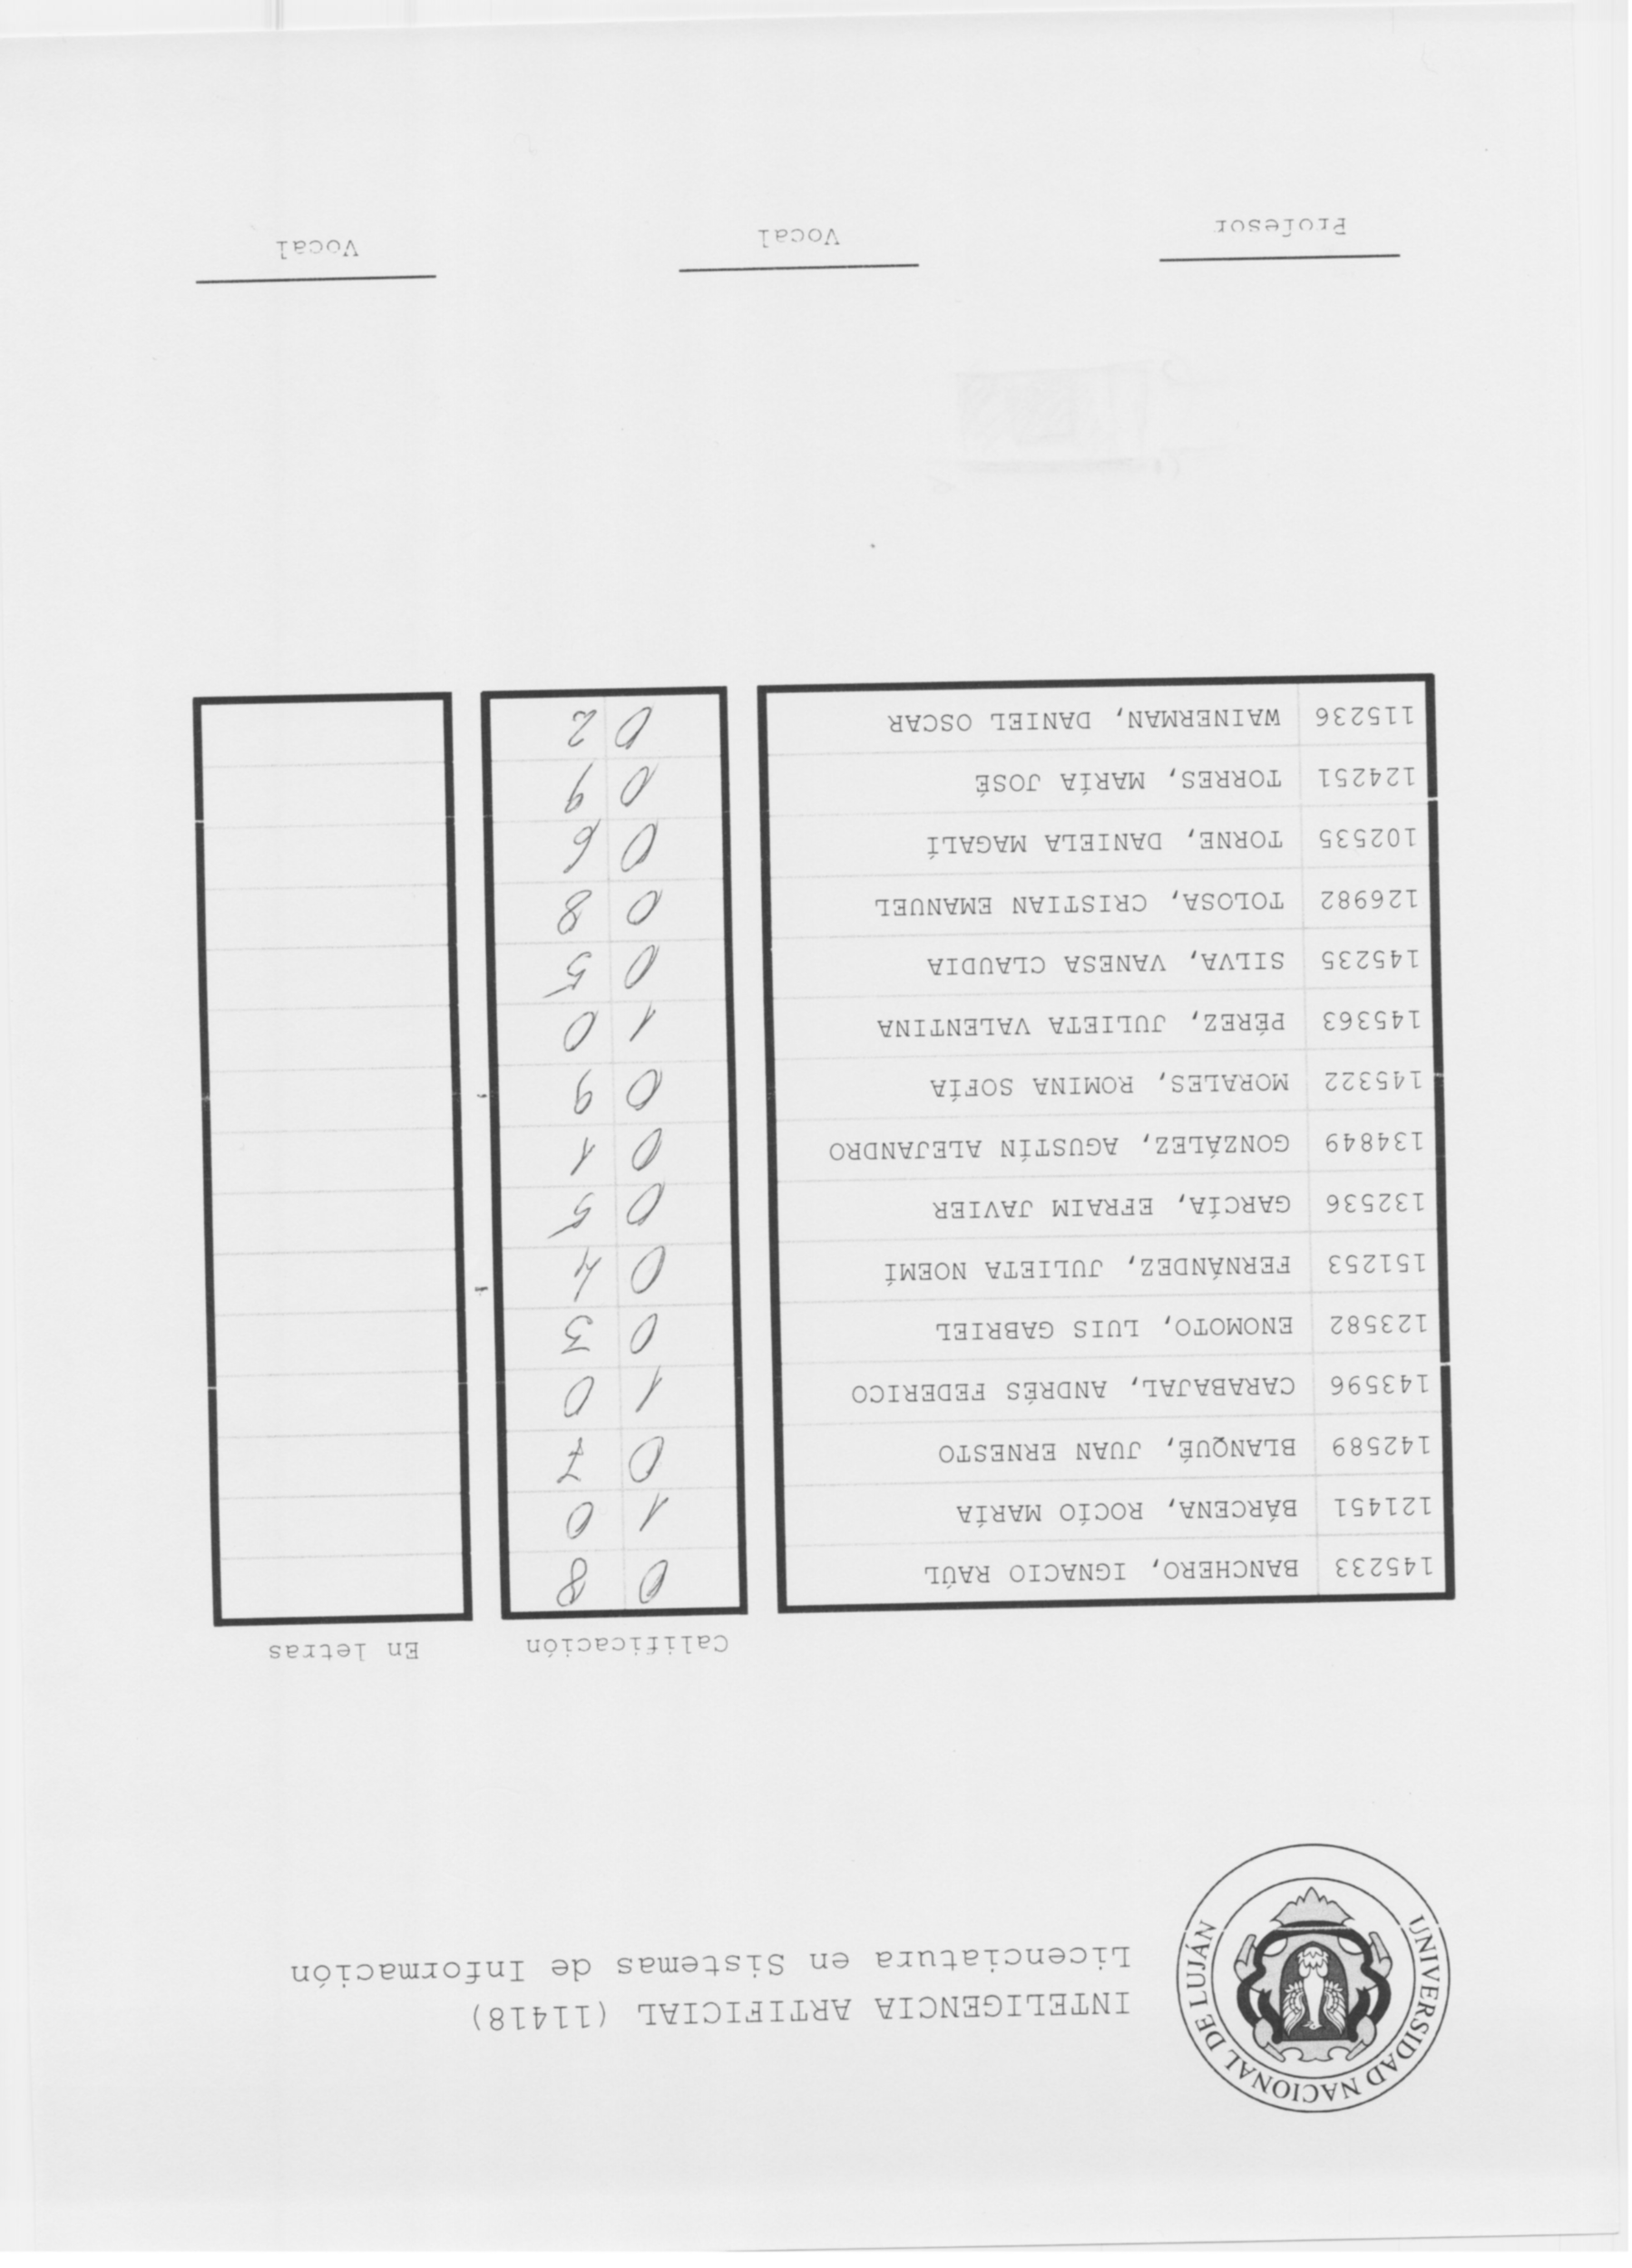 UNIVERSIDAD NACIONAL DE LUJÁN
INTELIGENCIA ARTIFICIAL (11418)
Licenciatura en Sistemas de Información
Calificación En letras
145233 BANCHERO, IGNACIO RAÚL 0 8
121451 BÁRCENA, ROCÍO MARÍA 1 0
142589 BLANQUÉ, JUAN ERNESTO 0 7
143596 CARABAJAL, ANDRÉS FEDERICO 1 0
123582 ENOMOTO, LUIS GABRIEL 0 3
151253 FERNÁNDEZ, JULIETA NOEMÍ 0 4
132536 GARCÍA, EFRAIM JAVIER 0 5
134849 GONZÁLEZ, AGUSTÍN ALEJANDRO 0 1
145322 MORALES, ROMINA SOFÍA 0 9
145363 PÉREZ, JULIETA VALENTINA 1 0
145235 SILVA, VANESA CLAUDIA 0 5
126982 TOLOSA, CRISTIAN EMANUEL 0 8
102535 TORNE, DANIELA MAGALÍ 0 6
124251 TORRES, MARÍA JOSÉ 0 9
115236 WAINERMAN, DANIEL OSCAR 0 2
Profesor Vocal Vocal